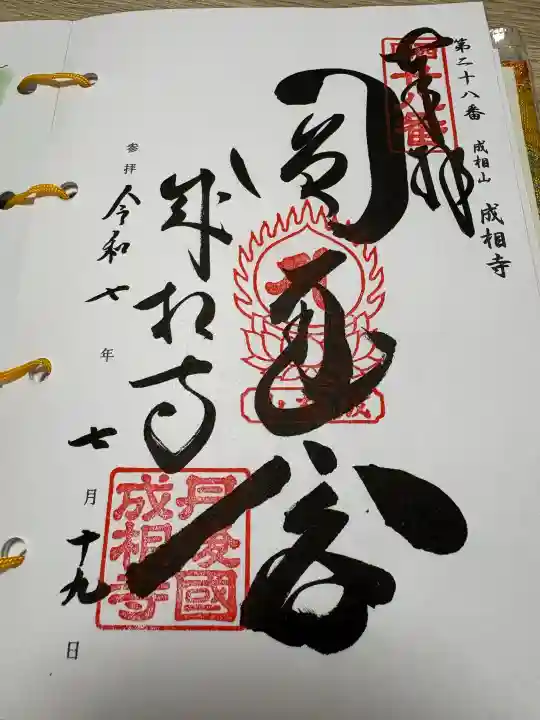 第二十八番 成相山 成相寺
奉拝
圓通閣
成相寺
参拝 令和七年七月十九日
丹後國
成相寺